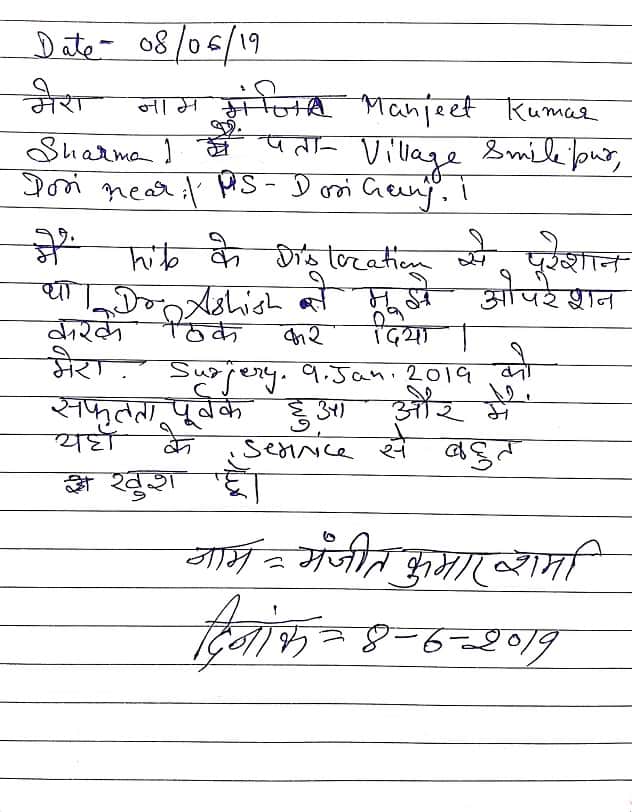 Date- 08/06/19
मेरा नाम Manjeet Kumar
Sharma । पता- Village Smilepur,
Dori near :/ PS- Dori Ganj. ।
में hib के Dislocation से परेशान
था। Dr. Ashish ने मुझे ओपरेशन
करके ठिक कर दिया ।
मेरा. Surgery. 9. Jan. 2019 को
सफलता पूर्वक हुआ और में
यहाँ के service से बहुत
खुश हूँ।
नाम = मंजीत कुमार शर्मा
दिनांक = 8-6-2019